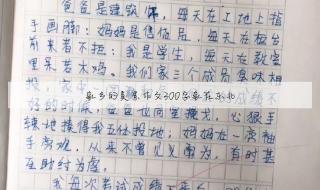 爸爸是建筑师，每天在工地上指
手画脚：妈妈是售货员，每天在柜台
前来者不拒；我是学生，每天在教室
里呆若木鸡。我们家三个成员臭味相
投，家中
家乡的夏景作文300字我在东北
不好的时候，爸爸也同室操戈，心狠手
辣地揍得我五体投地；妈妈在一旁袖
手旁观，从来不曾见义勇为，有时甚
至助纣为虐。
我每次考试成绩